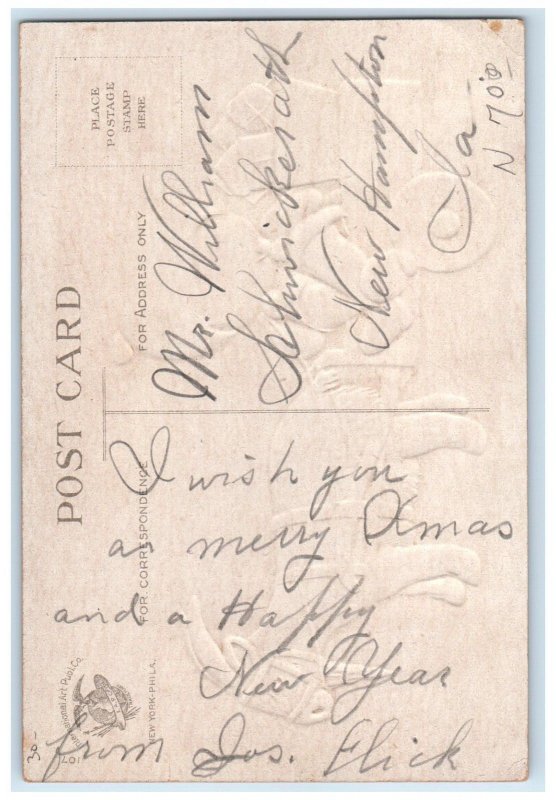 POST CARD
PLACE
POSTAGE
STAMP
HERE
FOR ADDRESS ONLY
Mr. William
Schwickerath
New Hampton
Ia
N 70
FOR CORRESPONDENCE
I wish you
a merry Xmas
and a Happy
New Year
from Jos. Flick
International Art Publ. Co.
NEW YORK-PHILA.
30-